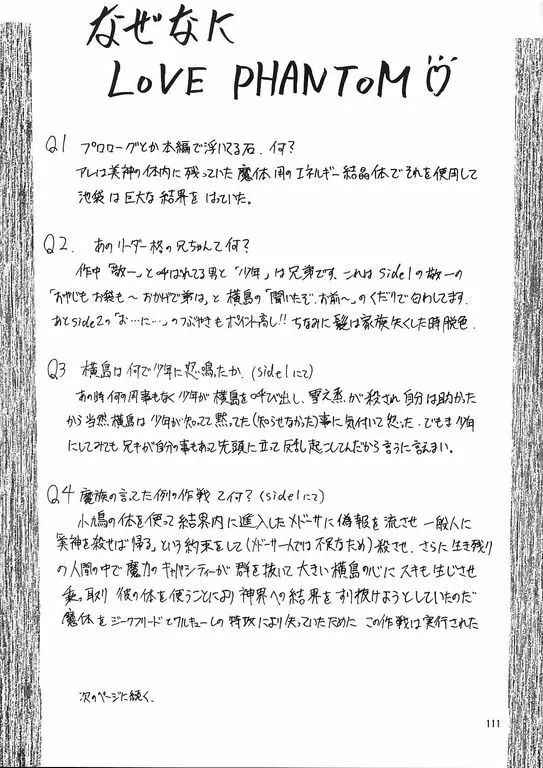 なぜなに
LOVE PHANTOM
Q1 プロローグとか本編で浮いてる石、何?
アレは美神の体内に残っていた魔体用のエネルギー結晶体でそれを使用して
池袋は巨大な結界をはっていた。
Q2. あのリーダー格の兄ちゃんて何?
作中「敬一」と呼ばれてる男と「少年」は兄弟です、これはside1の敬一の
「おやじもお袋も~おかげで弟は」と横島の「聞いたぞ、お前~」のくだりで匂わしてます.
あとside2の「お…に…」のつぶやきもポイント高し!! ちなみに髪は家族失くした時脱色.
Q3 横島は何で少年に怒鳴ったか、(side1にて)
あの時何の用事もなく少年が横島を呼び出し、雪之丞が殺され自分は助かった
から当然横島は少年が知ってて黙ってた(知らせなかった)事に気付いて怒った、でもま少年
にしてみても兄キが自分の事もあって先頭に立って反乱起こしてんだから言うに言えまい。
Q4 魔族の言ってた例の作戦て何?(side1にて)
小鳩の体を使って結界内に進入したメドーサに偽報を流させ一般人に
「美神を殺せば帰る」という約束をして(メドーサ一人では不足なため)殺させ、さらに生き残り
の人間の中で魔力のキャパシティーが群を抜いて大きい横島の心にスキも生じさせ
乗っ取り 彼の体を使うことにより神界への結界をすり抜けようとしていたのだ
魔体をジークフリードとワルキューレの特攻により失っていたために この作戦は実行された
次のページに続く.
111